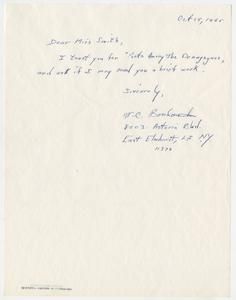 Oct 15, 1965
Dear Miss Smith,
I thank you for "Pote Among The Demagogues,
and ask if I may send you a brief work.
Sincerely,
W. C.
8003 Astoria Blvd.
East Elmhurst, L I NY
11370